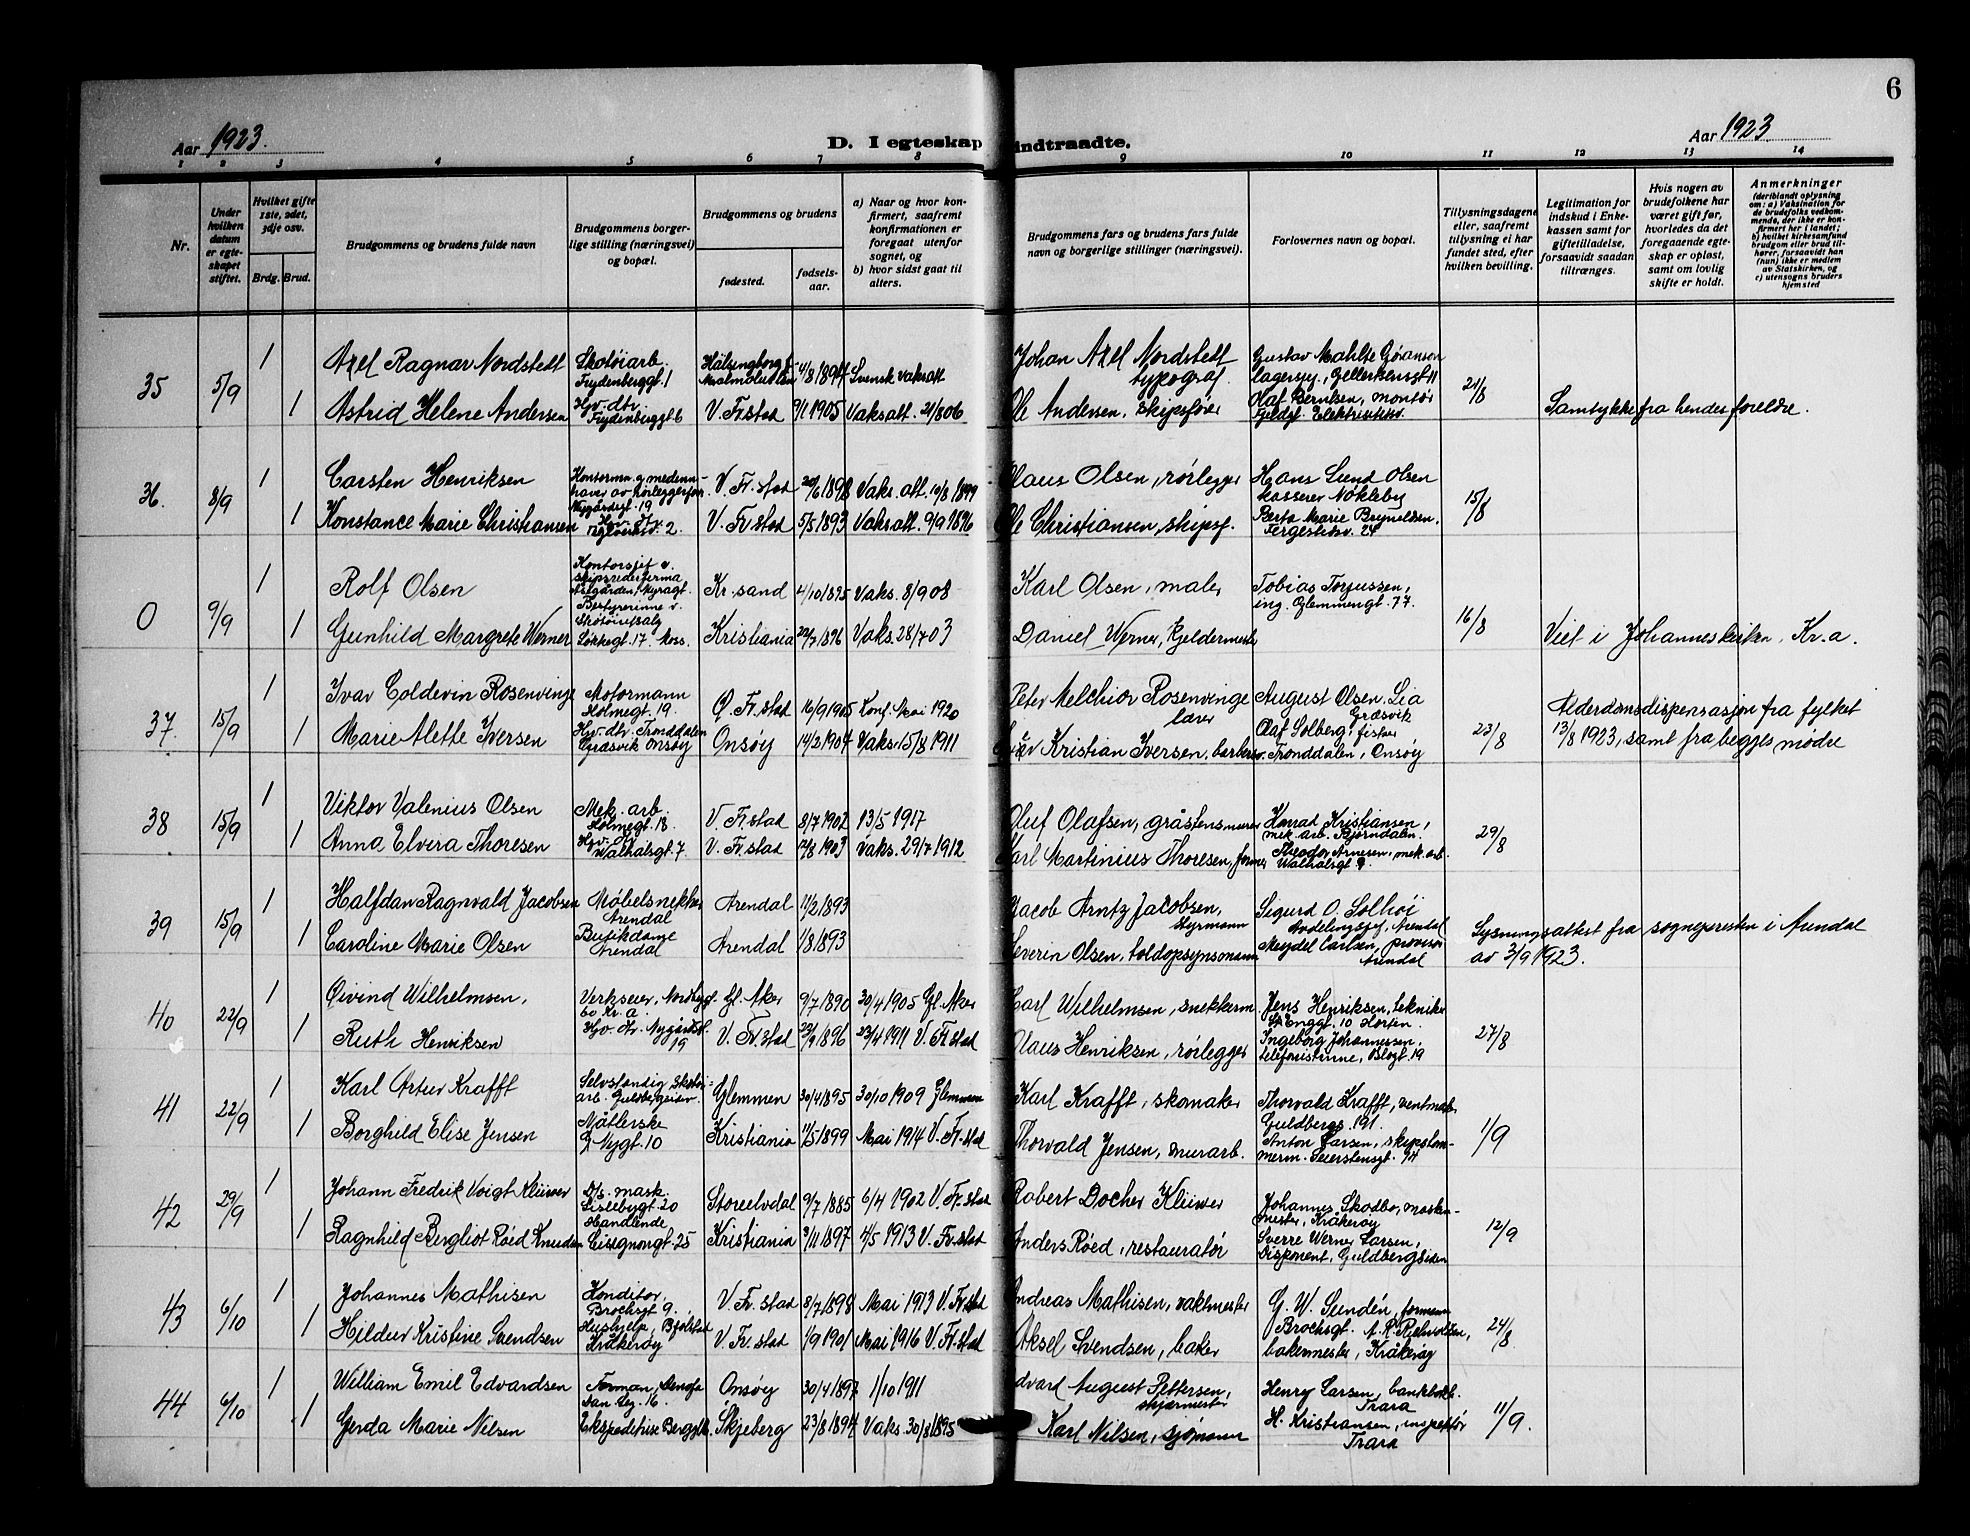 6
Aar 1923.
D. I egteskap indtraadte.
Aar 1923
1 2 3 4 5 6 7 8 9 10 11 12 13 14
Nr.
Under hvilken datum er egteskapet stiftet.
Hvilket gifte 1ste, 2det, 3dje osv.
Brdg. Brud.
Brudgommens og brudens fulde navn
Brudgommens borgerlige stilling (næringsvei) og bopæl.
Brudgommens og brudens
fødested.
fødselsaar.
a) Naar og hvor konfirmert, saafremt konfirmationen er foregaat utenfor sognet, og
b) hvor sidst gaat til alters.
Brudgommens fars og brudens fars fulde navn og borgerlige stillinger (næringsvei).
Forlovernes navn og bopæl.
Tillysningsdagene eller, saafremt tillysning ei har fundet sted, efter hvilken bevilling.
Legitimation for indskud i Enkekassen samt for giftetilladelse, forsaavidt saadan tiltrænges.
Hvis nogen av brudefolkene har været gift før, hvorledes da det foregaaende egteskap er opløst, samt om lovlig skifte er holdt.
Anmerkninger (deriblandt oplysning om: a) Vaksination for de brudefolks vedkommende, der ikke er konfirmert her i landet; b) hvilket kirkesamfund brudgom eller brud tilhører, forsaavidt han (hun) ikke er medlem av Statskirken, og c) utensogns bruders hjemsted
35 5/9 1 Axel Ragnar Nordstedt Skotøiarb. Frydenberggt. 1 Hälsingborg 4/8 1897 Svensk vaksatt Johan Axel Nordstedt typograf. Gustav Mahlte Gøranson lagersj., Gellertsensgt 11 21/8
1 Astrid Helene Andersen Hv. dtr. Frydenberggt 6 V. Fr.stad 9/1 1905 Vaksatt. 21/8 06 Ole Andersen, skipsfører Olaf Berntsen, montør Samtykke fra hendes foreldre.
36. 8/9 1 Carsten Henriksen Kontorm. og medinnhaver av rørleggerforr. Nygårdsgt. 19 V. Fr.stad 20/6 1898 Vaks. att. 10/8 1899 Olaus Olsen, rørlegger Hans Lund Olsen kasserer Nøkleby 15/8
1 Konstance Marie Christiansen Hv. dtr. Teglverksv. 2 V. Fr.stad 5/5 1893 Vaksatt. 9/9 1896 Ole Christiansen, skipsf. Berta Marie Brynildsen. Fergestedsv. 24
0 9/9 1 Rolf Olsen Kontorsjef v. skipsrederfirma Kr.sand 4/10 1895 Vaks. 8/9 08 Karl Olsen, maler Tobias Torjussen, ing. Glemmengt. 77. 16/8
1 Gunhild Margrete Werner Bestyrerinne v. Skotøiutsalg Kristiania 22/7 1896 Vaks. 28/7 03 Daniel Werner, Gjeldermester Viet i Johanneskirken, Kr.a.
37. 15/9 1 Ivar Coldevin Rosenvinge Motormann Holmegt. 19. G. Fr.stad 16/9 1905 Konf. Mai 1920 Peter Melchior Rosenvinge lærer August Olsen Lia Græsvik 23/8 Alderdomsdispensasjon fra fylket
1 Marie Alette Iversen Hv. dtr. Tronddalen Græsvik Onsøy Onsøy 14/2 1907 Vaks. 15/8 1911 Kristian Iversen, barberer Olaf Solberg, fisker Tronddalen, Onsøy 13/8 1923, samt fra begges mødre
38 15/9 1 Viktor Valenius Olsen Mek. arb. Holmegt. 18. V. Fr.stad 8/7 1902 13/5 1917 Oluf Olafsen, gråstensmurer Konrad Kristiansen, mek. arb. Bjørndalen. 29/8
1 Anna Elvira Thoresen Hv. dtr. Walhalsgt. 7 V. Fr.stad 12/8 1903 Vaks. 29/7 1912 Karl Martinius Thoresen, former Theodor Arnesen, mek. arb. Walhalsgt 9
39 15/9 1 Halfdan Ragnvald Jacobsen Møbelsnekker Arendal Arendal 11/2 1893 Jacob Arntz Jacobsen, Styrmann Sigurd O. Solhøi Avdelingssjef, Arendal Lysningsattest fra sognepresten i Arendal
1 Caroline Marie Olsen Butikdame Arendal Arendal 1/8 1893 Severin Olsen, toldopsynsmann Meydel Carlsen, provisor Arendal av 3/9 1923.
40 22/9 1 Øivind Wilhelmsen, Verkseier, Nordbygt. 60 Kr.a. Gl. Aker 9/7 1890 30/4 1905 Gl. Aker Carl Wilhelmsen, snekkerm Jens Henriksen, tekniker St. Enggt. 10 Horten. 27/8
1 Ruth Henriksen Hv. dtr. Nygårdsgt. 19 V. Fr.stad 23/9 1896 23/4 1911 V. Fr.stad Olaus Henriksen, rørlegger Ingeborg Johannessen, telefonistinne, Blogt. 19
41 22/9 1 Karl Artur Krafft Selvstændig skotøiarb. Guldbergsiden Glemmen 30/4 1895 30/10 1909 Glemmen Karl Krafft, skomaker Thorvald Krafft, Guldbergs. 191. 1/9
1 Borghild Elise Jensen Nåtlerske G. Nygt. 10 Kristiania 11/5 1899 Mai 1914 V. Fr.stad Thorvald Jensen, murarb. Anton Larsen, skipstømmerm. Seierstensgt. 94
42 29/9 1 Johann Fredrik Voigt Klüwer D/s. mask. Lislebygt. 20 Storelvdal 9/7 1885 6/4 1902 V. Fr.stad Robert Docher Klüwer Johannes Skodbo, maskinmester, Kråkerøy 12/9
1 Ragnhild Bergliot Røed Knudsen Handlende Cicignongt. 25 Kristiania 3/11 1897 4/5 1913 V. Fr.stad Anders Røed, restauratør Sverre Werner Larsen, Disponent, Guldbergsiden
43 6/10 1 Johannes Mathisen Konditor, Brochsgt 9. V. Fr.stad 8/7 1898 Mai 1913 V. Fr.stad Andreas Mathisen, vaktmester G. W. Sundén, formann Brochsgt. 24/8
1 Hildur Kristine Svendsen Hushjelp Bjølstad Kråkerøy V. Fr.stad 1/9 1901 Mai 1916 V. Fr.stad Aksel Svendsen, baker bakermester, Kråkerøy
44 6/10 1 William Emil Edvardsen Formann, Denofa Onsøy 30/4 1897 1/10 1911 Edvard August Pettersen, skjærmester Henry Larsen, Trara 11/9.
1 Gerda Marie Nilsen Ekspeditrise Skjeberg 23/8 1894 Vaks. 30/8 1895 Karl Nilsen, sjømann H. Kristiansen, inspektør Trara